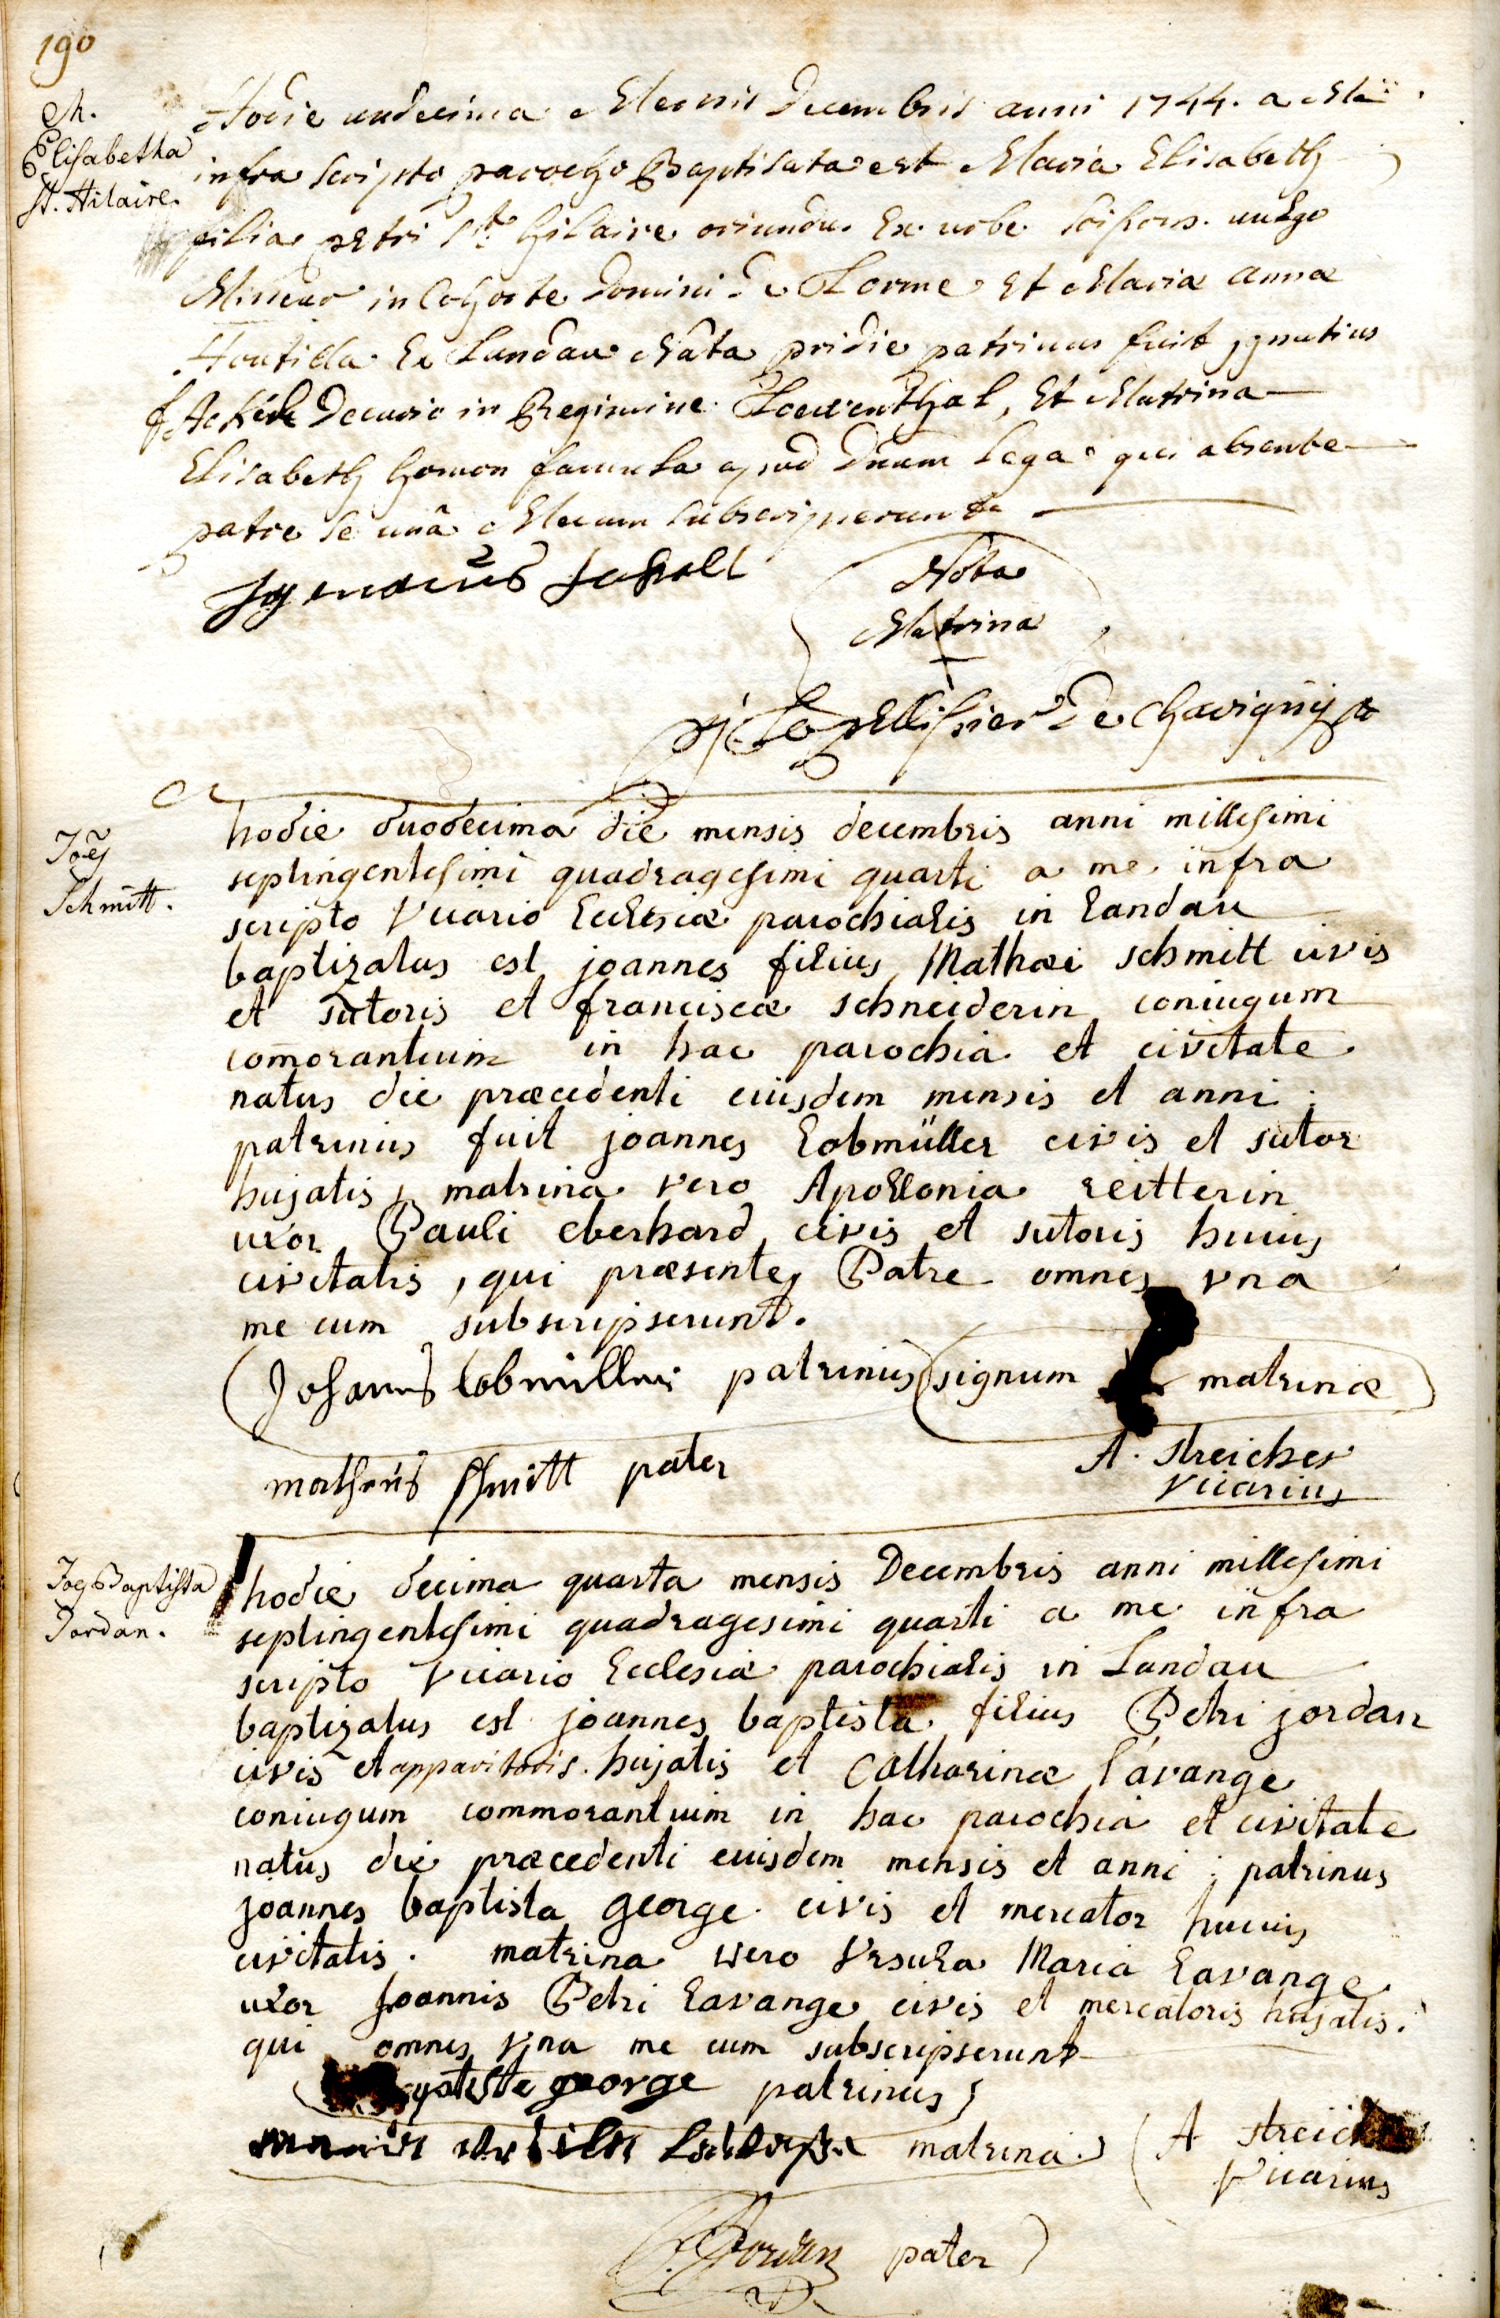 190
M.
Elisabetha
St. Hilaire.
Hodie undecima Mensis Decembris anni 1744. a Me
infra scripto parocho Baptisata est Maria Elisabeth
filia petri St. hilaire oriundu. Ex urbe soissons. vulgo
Mineur in Cohorte Domini De Lorme Et Maria anna
Ex Landau Nata pridie patrinus fuit ignatius
Decurio in Regimine Loewenthal, Et Matrina
Elisabeth homon famula apud Dnum Lega qui absente
patre se unâ Mecum subscripserunt
Ignacius
Nota
Matrina
+
Le pellissier De Chavigny
Joes
Schmitt.
hodie duodecima die mensis decembris anni millesimi
septingentesimi quadragesimi quarti a me infra
scripto Vicario Ecclesiæ parochialis in Landau
baptizatus est joannes filius Mathæi schmitt civis
et sutoris et franciscæ schneiderin coniugum
comorantium in hac parochia et civitate
natus die præcedenti eiusdem mensis et anni :
patrinus fuit joannes Lobmüller civis et sutor
hujatis, matrina vero Apollonia reitterin
uxor Pauli eberhard civis et sutoris huius
civitatis, qui præsente Patre omnes vna
me cum subscripserunt.
Johannes lobmiller patrinus signum matrinæ
matheus schmitt pater
A. Streicher
Vicarius
Joes Baptista
Jordan.
hodie decima quarta mensis Decembris anni millesimi
septingentesimi quadragesimi quarti a me infra
scripto Vicario Ecclesiæ parochialis in Landau
baptizatus est joannes baptista filius Petri jordan
civis et apparitoris hujatis et Catharinæ Lavange
coniugum commorantium in hac parochia et civitate
natus die præcedenti eiusdem mensis et anni ; patrinus
joannes baptista george civis et mercator huius
civitatis. matrina vero Vrsula Maria Lavange
uxor Joannis Petri Lavange civis et mercatoris hujatis.
qui omnes vna me cum subscripserunt
george patrinus
matrina
A Streicher
Vicarius
Jordan pater